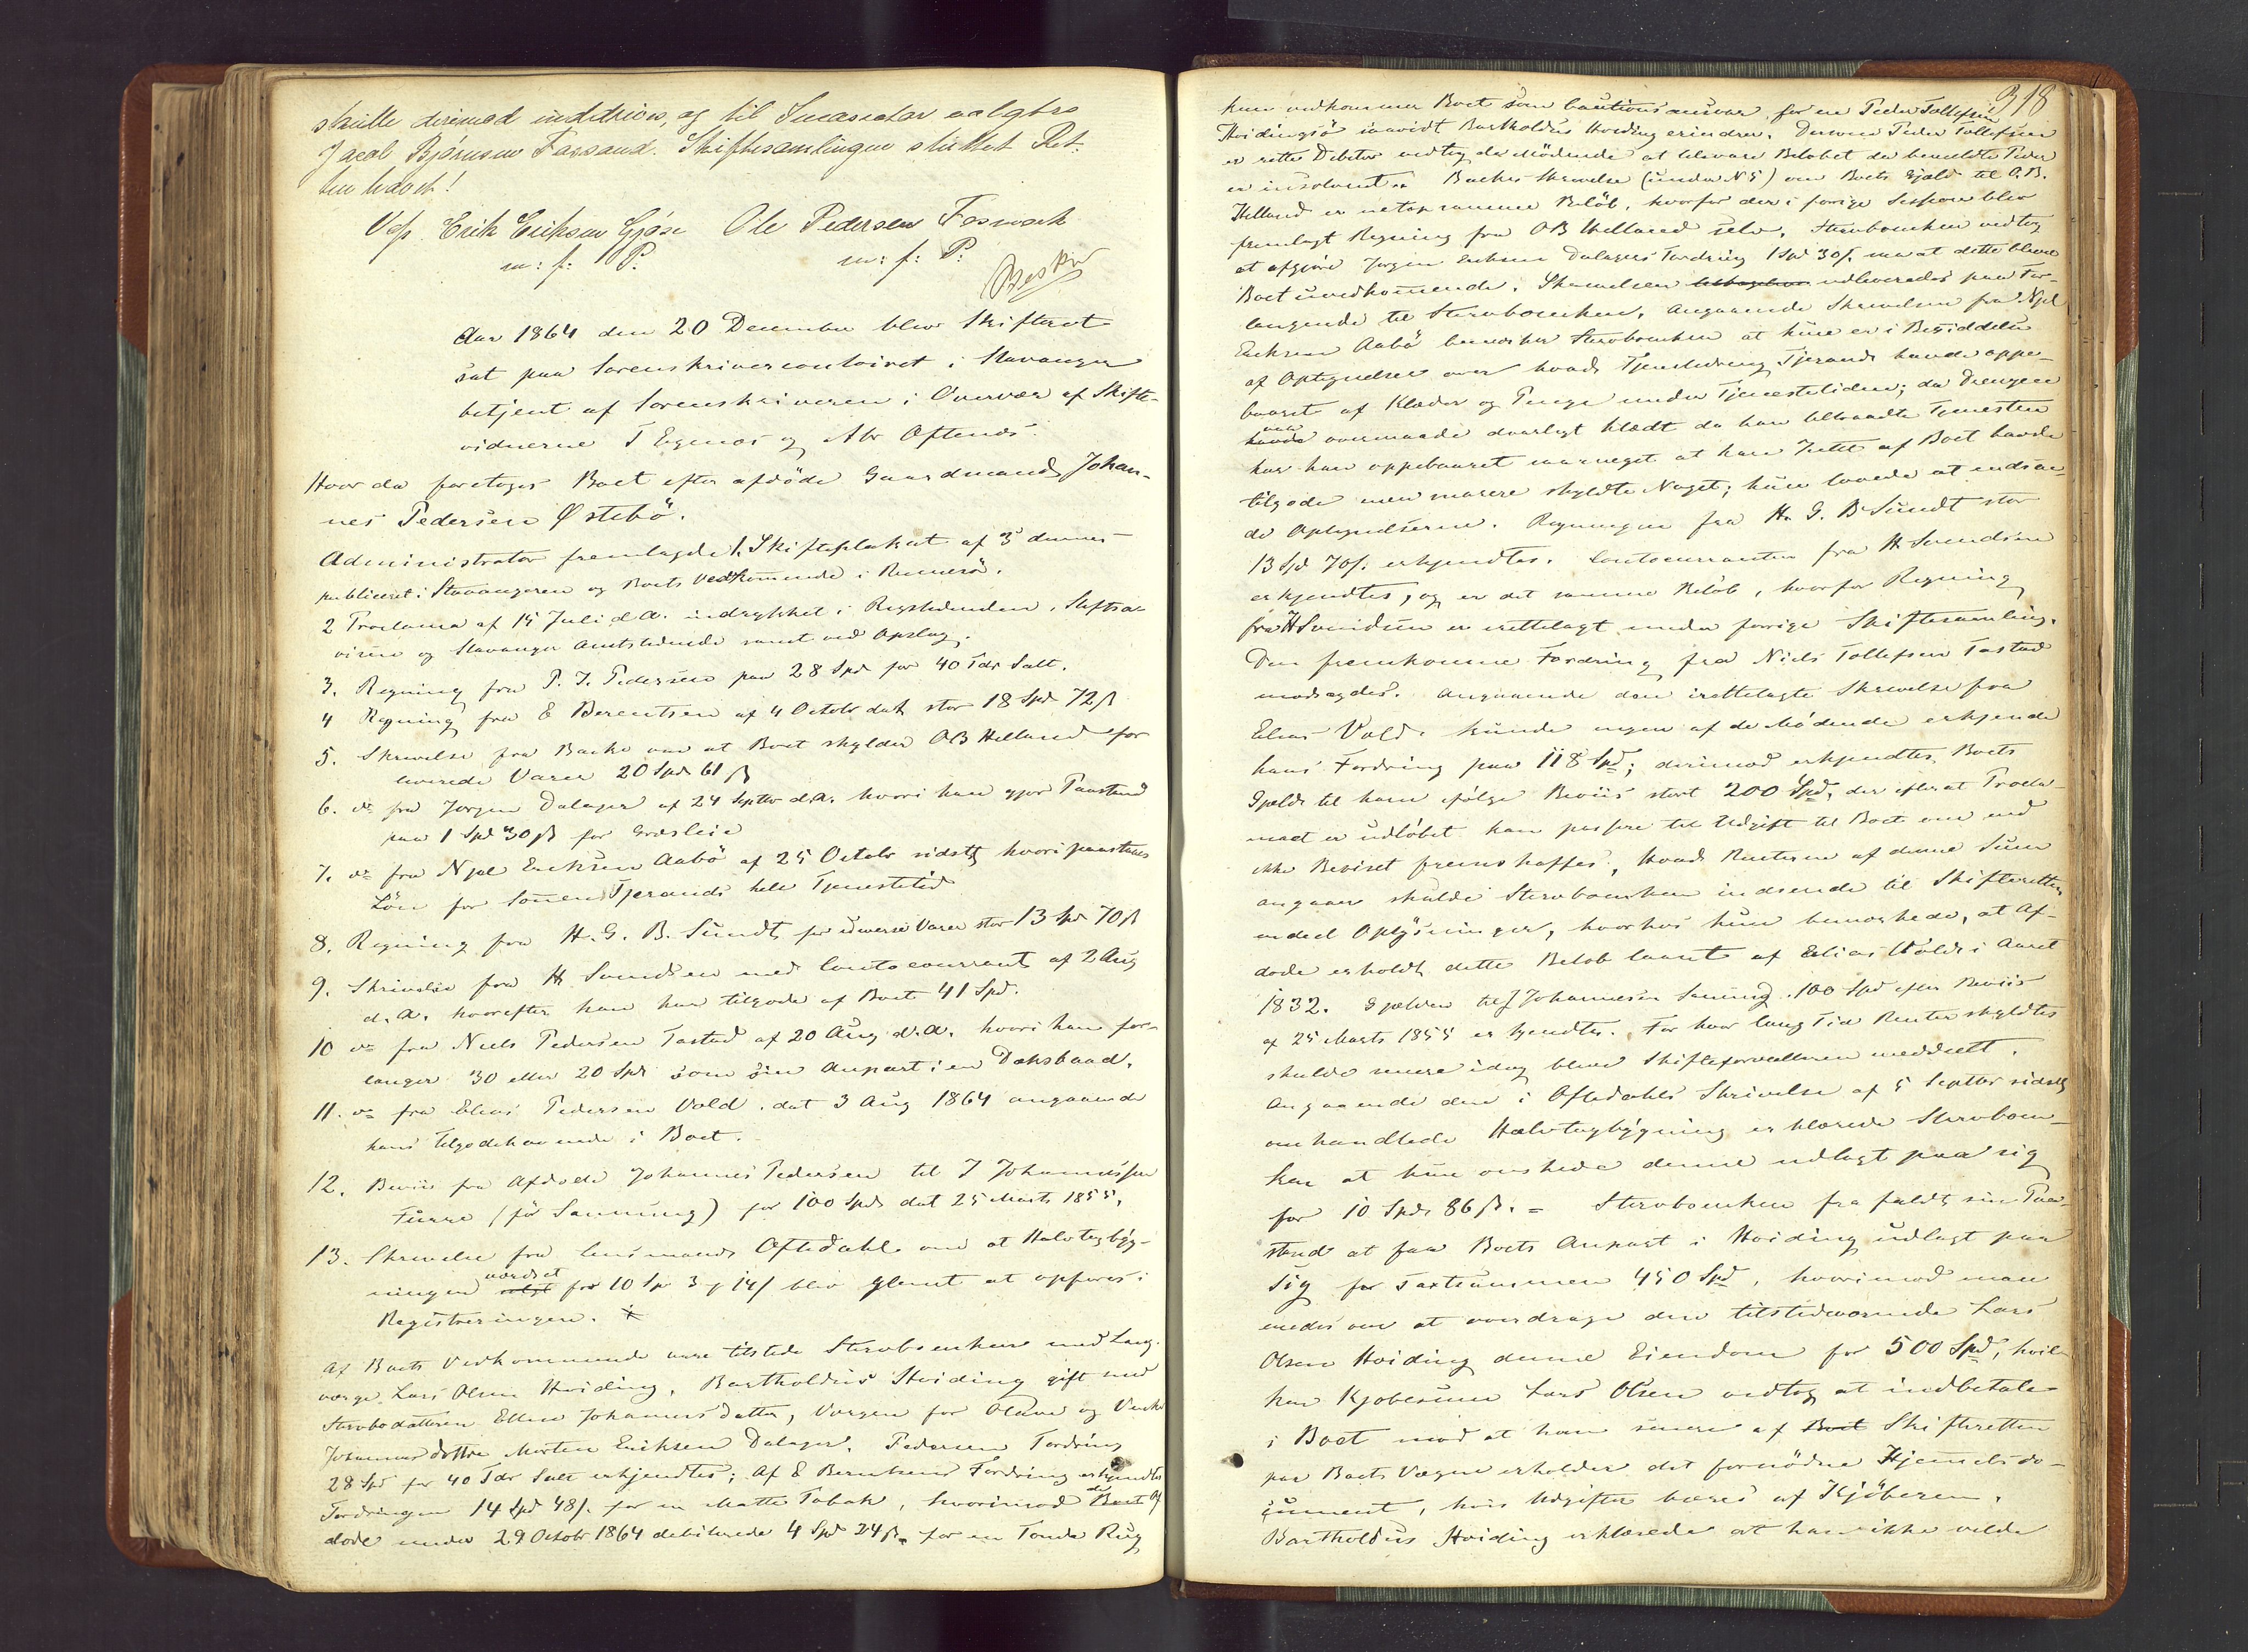 skulle derimod inddrives, og til Incasator valgtes
Jacob Bjørnsen Fassand. Skiftesamlingen sluttet Ret-
ten hævet!
Vdf. Erik Eriksen Gjøse Ole Pedersen Fosmark
m: f: P: m: f: P:
Aar 1864 den 20 December blev Skifteret
sat paa Sorenskrivercontoiret i Stavanger
betjent af Sorenskriveren i Overvær af Skifte-
vidnerne T Egenæs og Abr Oftenæs.
Hvor da foretoges Boet efter afdöde Gaardmand Johan-
nes Pedersen Østebö.
Administrator fremlagde 1. Skifteplakat af 3 dennes
publiceret i Stavangeren og Boets Vedkommende i Rennesö.
2 Proclama af 15 Juli d. A. indrykket i Rigstidenden, Stiftsa-
visen og Stavanger Amtstidende samt ved Opslag.
3. Regning fra P. T. Pedersen paa 28 Spd for 40 Tdr Salt.
4 Regning fra E Berentsen af 4 Octobr dat stor 18 Spd 72 β
5. Skrivelse fra Backe om at Boet skylder OB Helland for
leverede Varer 20 Spd 61 β
6. do fra Jørgen Dalager af 24 Septbr d.A. hvori han gjør Paastand
paa 1 Spd 30 β for Græsleie
7. do fra Njel Eriksen Aabö af 25 Octobr sidstl hvori paastaaes
Lön for Sönnen Tjerands hele Tjenestetid
8. Regning fra H. G. B. Sundt for diverse Varer stor 13 Spd 70 β
9. Skrivelse fra H Svendsen med Contocourant af 2 Aug
d. A. hvorefter han har tilgode af Boet 41 Spd.
10 do fra Niels Pedersen Tastad af 20 Aug d. A. hvori han for-
langer 30 eller 20 Spd som sin Anpart i en Dæksbaad.
11. do fra Elias Pedersen Vold dat 3 Aug 1864 angaaende
hans Tilgodehavende i Boet.
12. Beviis fra Afdøde Johannes Pedersen til J Johannessen
Furre (för Sanning) for 100 Spd dat 25 Marts 1855.
13. Skrivelse fra Lensmand Oftedahl om at Halvtagbyg-
værdsat
ningen solgt for 10 Sp 3 og 14 β blev glemt at opføres i
Registreringen.
Af Boets Vedkommende vare tilstede Stervboenken med Laug-
værge Lars Olsen Hviding, Bartholdus Hviding gift med
Stervbodatteren Ellen Johannesdatter, Værgen for Oline og
Johannesdøttre Morten Eriksen Dalager. Pedersens Fordring
28 Spd for 40 Tdr Salt erkjendtes; Af E Berentsens Fordring erkjendtes
Fordringen 14 Spd 48 β for en Matte Tobak, hvorimod de Boet Af
døde under 29 Octobr 1864 debiterede 4 Spd 24 β for en Tønde Rug
318
kun vedkommer Boet som Cautionsansvar for en Peder Tollefsen
Hvidingsö saavidt Bartholdus Hviding erindrer. Dersom Peder Tollefsen
er rette Debitor vedtog de Mödende at tilsvare Beløbet da bemeldte Peder
er insolvent. Backes Skrivelse (under N 5) om Boets Gjæld til O.B.
Helland er netop samme Beløb, hvorfor der i forrige Session blev
fremlagt Regning fra OB Helland selv. Stervboenken vedtog
at afgjøre Jørgen Eriksen Dalagers Fordring 1 Spd 30 β. saa at dette bliver
Boet uvedkommende. Skrivelsen udleveredes paa For-
langende til Stervboenken. Angaaende Skrivelsen fra Njel
Eriksen Aabö bemærker Stervboenken at hun er i Besiddelse
af Optegnelser over hvad Tjenestdreng Tjerand havde oppe-
baaret af Klæder og Penge under Tjenestetiden; da Drengen
var
havde overmaade daarligt klædt da han tiltraadte Tjenesten
har han oppebaaret saameget at han Intet af Boet havde
tilgode men snarere skyldte Noget; hun lovede at indsen-
de Optegnelserne. Regningen fra H. G. B Sundt stor
13 Spd 70 β. erkjendtes. Contocouranten fra H Svendsen
erkjendtes, og er det samme Beløb, hvorfor Regning
fra H Svendsen er irettelagt under forrige Skiftesamling.
Den fremkomne Fordring fra Niels Tollefsen Tastad
modsagdes. Angaaende den irettelagte Skrivelse fra
Elias Vold kunde ingen af de Mødende erkjende
hans Fordring paa 118 Spd; derimod erkjendtes Boets
Gjæld til ham ifølge Beviis stort 200 Spd, der efterat Procla-
maet er udløbet kan passere til Udgift til Boet om end
ikke Beviset fremskaffes. Hvad Renterne af denne Sum
angaaer skulde Stervboenken indsende til Skifteretten
endeel Oplysninger, hvorhos hun bemærkede, at Af-
døde erholdt dette Beløb laant af Elias Vold i Aaret
1832. Gjælden til J Johannesen Sanning 100 Spd efter Beviis
af 25 Marts 1855 erkjendtes. For hvor lang Tid Renter skyldtes
skulde senere idag blive Skifteforvalteren meddeelt.
Angaaende den i Oftedahls Skrivelse af 5 Septbr sidstl
omhandlede Halvtagbygning erklærede Stervboen-
ken at hun ønskede denne udlagt paa sig
for 10 Spd 86 β. = Stervboenken frafaldt sin Paa-
stand at faa Boets Anpart i Hviding udlagt paa
sig for Taxtsummen 450 Spd, hvorimod man
enedes om at overdrage den tilstedeværende Lars
Olsen Hviding denne Eiendom for 500 Spd, hvil-
ken Kjøbesum Lars Olsen vedtog at indbetale
i Boet mod at han senere af Boet Skifteretten
paa Boets Vegne erholder det fornødne Hjemelsdo-
cument, hvis Udgifter bæres af Kjøberen.
Bartholdus Hviding erklærede at han ikke vilde